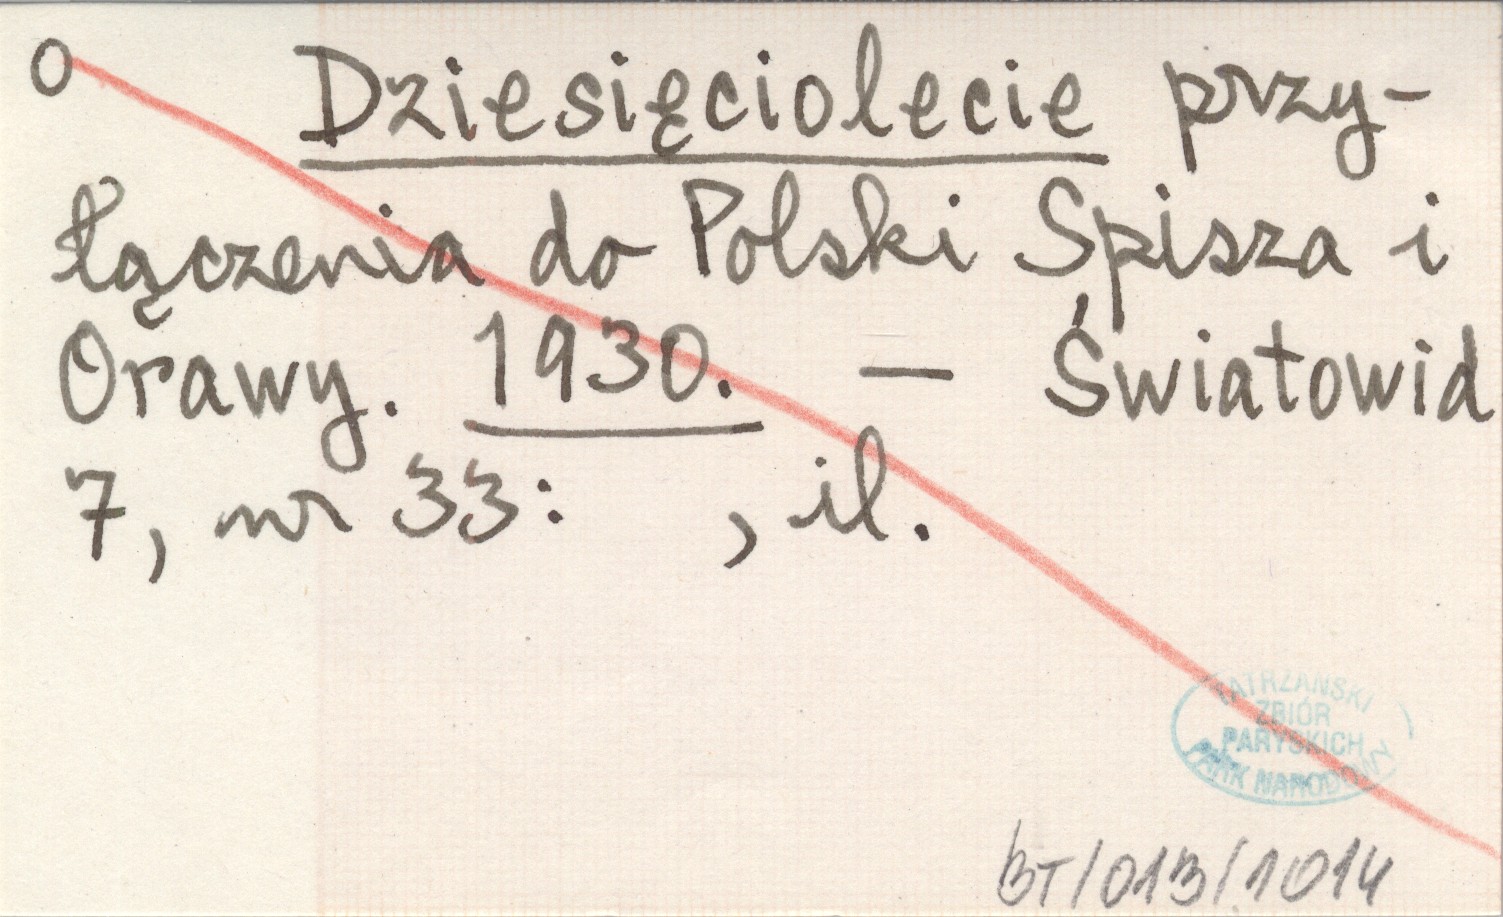 O Dziesięciolecie przy-
łączenia do Polski Spisza i
Orawy. 1930. — Światowid
7, nr 33: , il.
TATRZAŃSKI
ZBIÓR
PARYSKICH
PARK NARODOWY
BT/013/1014